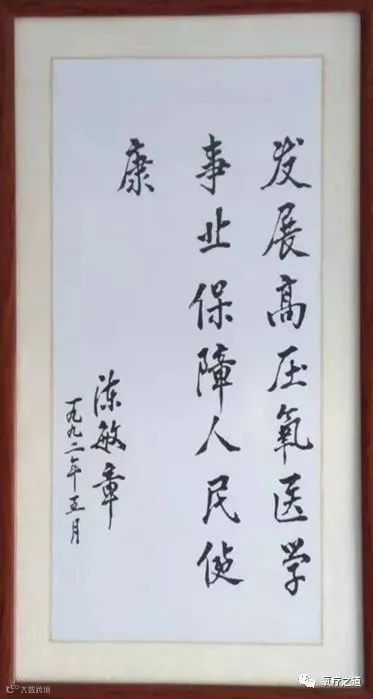 发展高压氧医学
事业保障人民健
康
陈敏章
一九九二年五月
大数跨境
氧疗之道